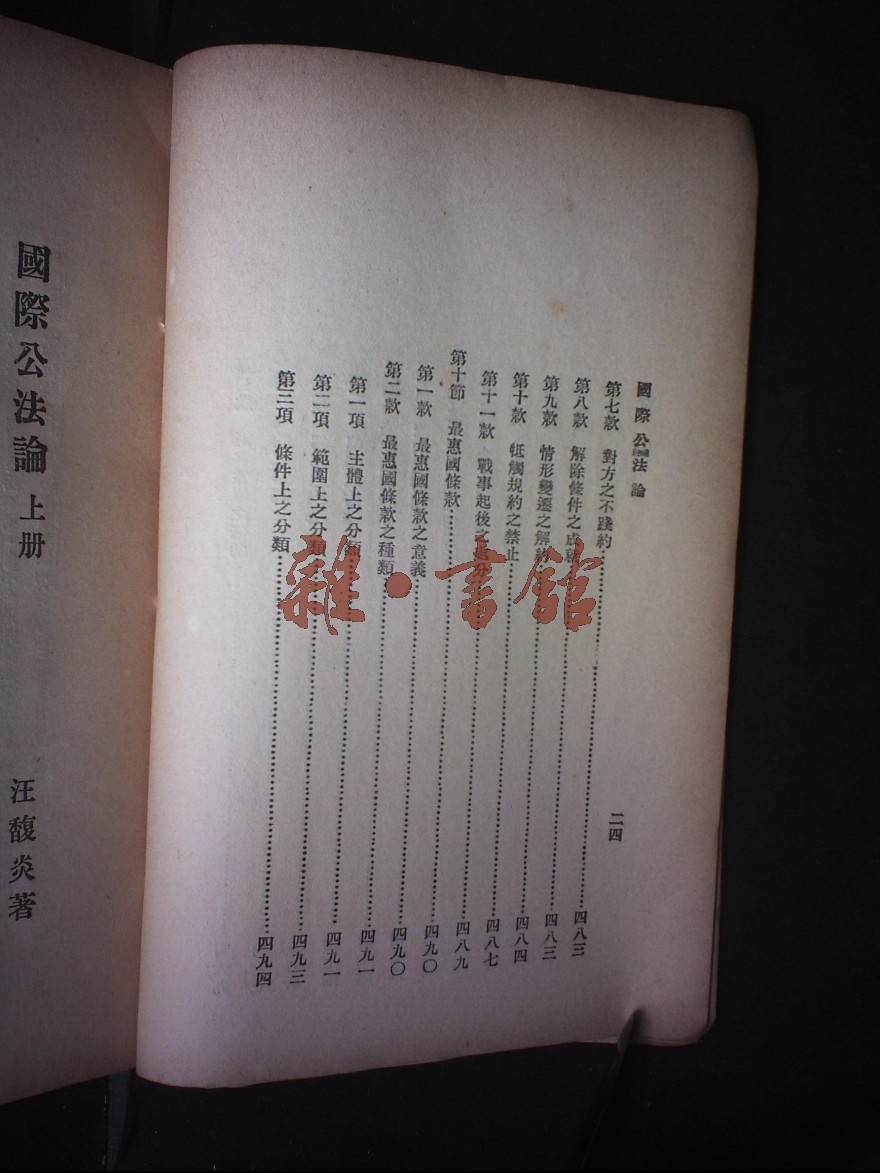 國際公法論
二四
第七款 對方之不踐約……四八三
第八款 解除條件之成就……四八三
第九款 情形變遷之解約……四八四
第十款 牴觸規約之禁止……四八七
第十一款 戰事起後之處分……四八九
第十節 最惠國條款……四九〇
第一款 最惠國條款之意義……四九〇
第二款 最惠國條款之種類……四九一
第一項 主體上之分類……四九一
第二項 範圍上之分類……四九三
第三項 條件上之分類……四九四
國際公法論 上册
汪馥炎著
雜·書館